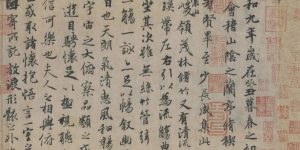 和九年歲在癸丑暮春之初
會稽山陰之蘭亭脩稧
賢畢至少長咸集此
峻領茂林脩竹又有清流
帶左右引以為流觴
坐其次雖無絲竹管弦
一觴一詠亦足以暢敘幽
日也天朗氣清惠風和暢
宇宙之大俯察品類之
遊目騁懷足以極視
信可樂也夫人之相與俯
或取諸懷抱悟言一室之
因寄所託放浪形骸之外